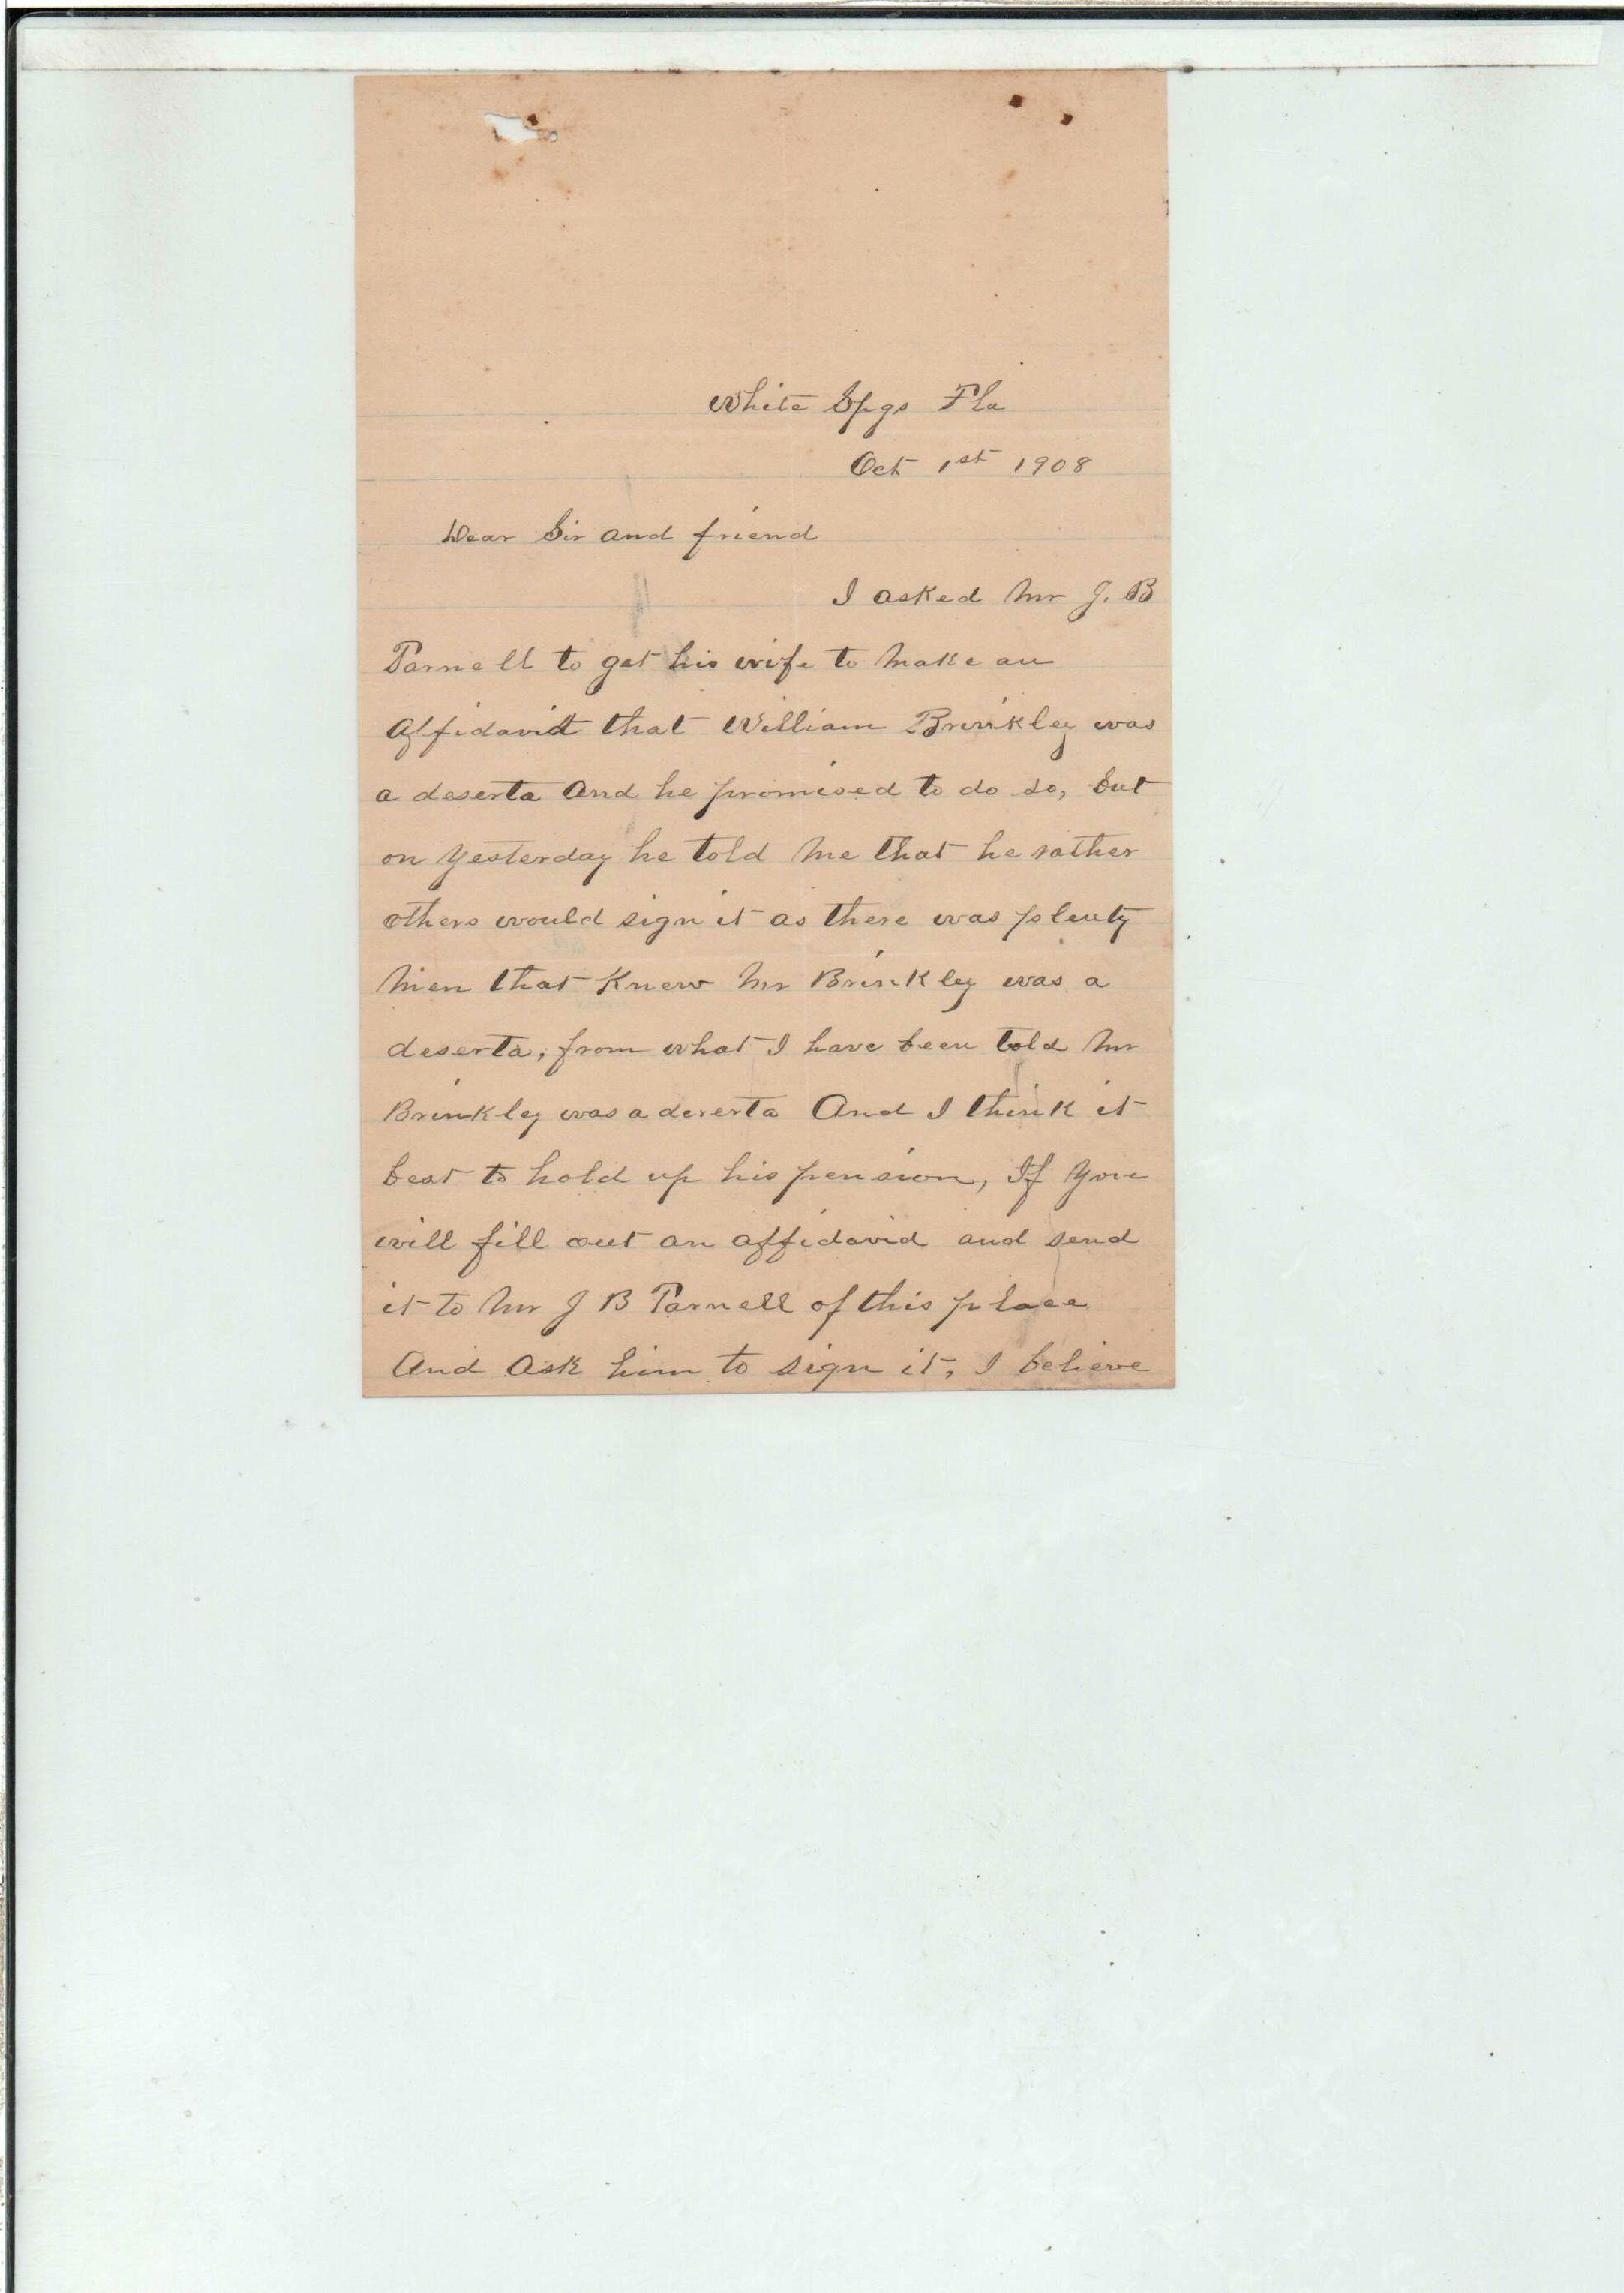 White Spgs Fla
Oct 1st 1908
Dear Sir and friend
I asked Mr J. B
Parnell to get his wife to make an
Affidavid that William Brinkley was
a deserta And he promised to do so, but
on yesterday he told me that he rather
others would sign it as there was plenty
men that Knew Mr Brinkley was a
deserta, from what I have been told Mr
Brinkley was a deserta And I think it
best to hold up his pension, If you
will fill out an affidavid and send
it to Mr J B Parnell of this place
And Ask him to sign it, I believe